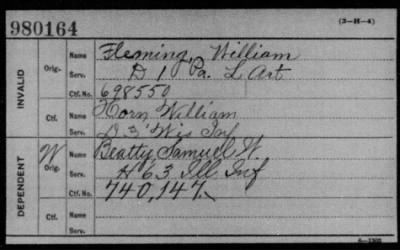 980164
(3-H-4)
INVALID
Orig.
Name Fleming, William
Serv. D 1 Pa. L Art
Ctf. No. 698550
Ctf.
Name Horn William
Serv. D 3 Wis Inf
DEPENDENT
W
Orig.
Name Beatty, Samuel W.
Serv. H 63 Ill Inf
Ctf. No. 740,147
Ctf.
Name
Serv.